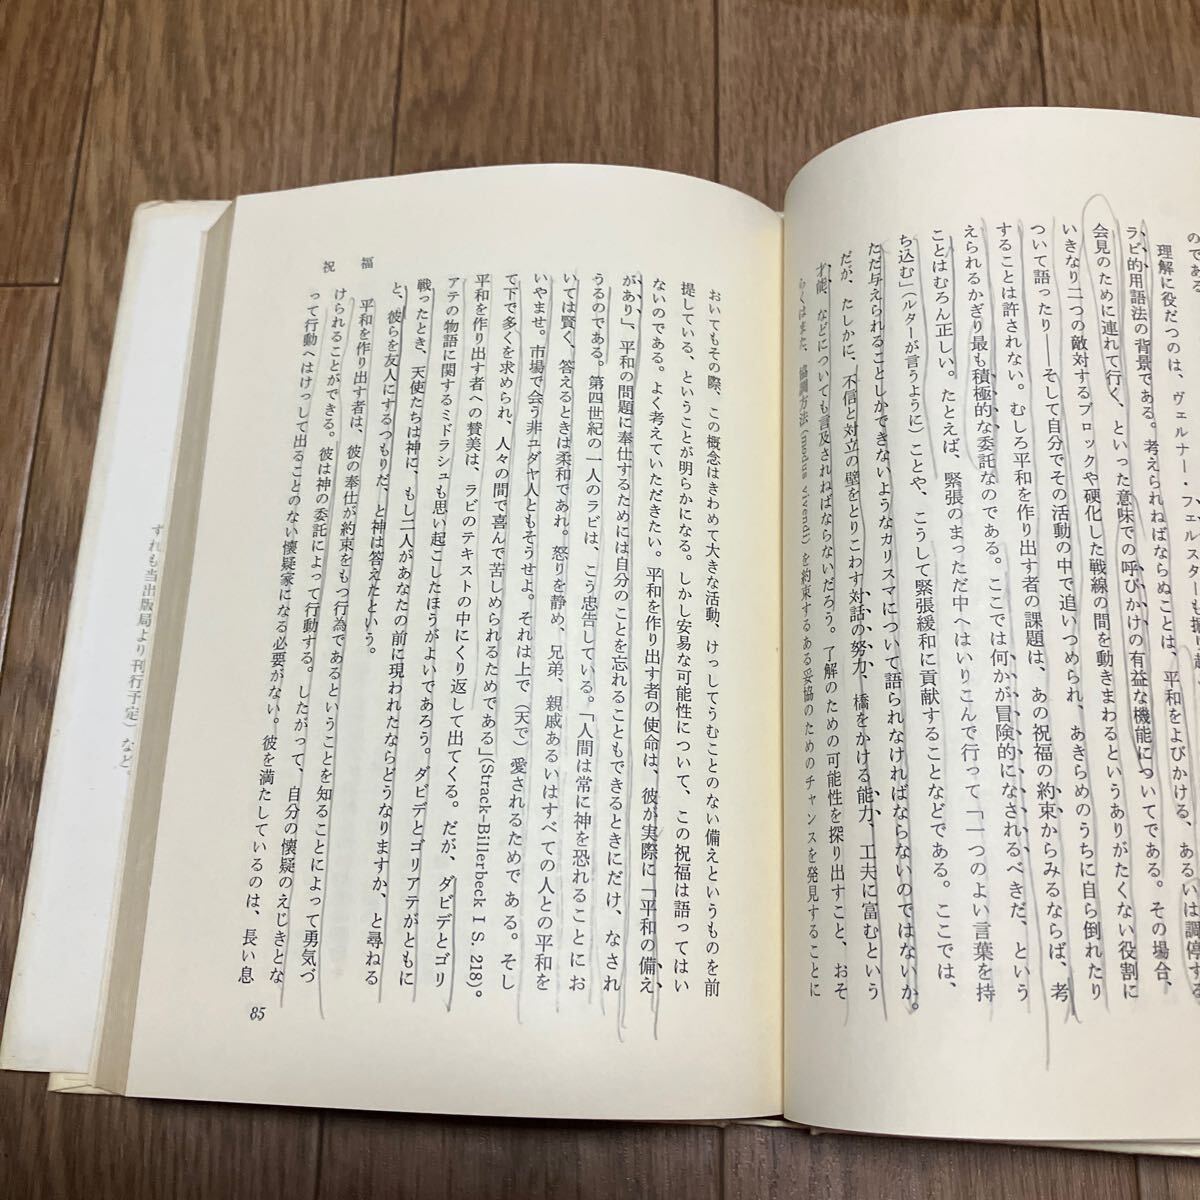 のである。
理解に役だつのは、ヴェルナー・フェルスター
ラビ的用語法の背景である。考えられねばならぬことは、平和をよびかける、あるいは調停する
会見のために連れて行く、といった意味での呼びかけの有益な機能についてである。その場合、
いきなり二つの敵対するブロックや硬化した戦線の間を動きまわるというありがたくない役割に
ついて語ったり――そして自分でその活動の中で追いつめられ、あきらめのうちに自ら倒れたり
することは許されない。むしろ平和を作り出す者の課題は、あの祝福の約束からみるならば、考
えられるかぎり最も積極的な委託なのである。ここでは何かが冒険的になされるべきだ、という
ことはむろん正しい。たとえば、緊張のまっただ中へはいりこんで行って「一つのよい言葉を持
ち込む」(ルターが言うように)ことや、こうして緊張緩和に貢献することなどである。ここでは、
ただ与えられることしかできないようなカリスマについて語られなければならないのではないか。
だが、たしかに、不信と対立の壁をとりこわす対話の努力、橋をかける能力、工夫に富むという
才能、などについても言及されねばならないだろう。了解のための可能性を探り出すこと、おそ
らくはまた、協調方法(modus vivendi)を約束するある妥協のためのチャンスを発見することに
おいてもその際、この概念はきわめて大きな活動、けっしてうむことのない備えというものを前
提している、ということが明らかになる。しかし安易な可能性について、この祝福は語ってはい
ないのである。よく考えていただきたい。平和を作り出す者の使命は、彼が実際に「平和の備え
があり」、平和の問題に奉仕するためには自分のことを忘れることもできるときにだけ、なされ
うるのである。第四世紀の一人のラビは、こう忠告している。「人間は常に神を恐れることにお
いては賢く、答えるときは柔和であれ。怒りを静め、兄弟、親戚あるいはすべての人との平和を
いやませ。市場で会う非ユダヤ人ともそうせよ。それは上で(天で)愛されるためである。そし
て下で多くを求められ、人々の間で喜んで苦しめられるためである」(Strack-Billerbeck I S. 218)。
平和を作り出す者への賛美は、ラビのテキストの中にくり返して出てくる。だが、ダビデとゴリ
アテの物語に関するミドラシュも思い起こしたほうがよいであろう。ダビデとゴリアテがともに
戦ったとき、天使たちは神に、もし二人があなたの前に現われたならどうなりますか、と尋ねる
と、彼らを友人にするつもりだ、と神は答えたという。
平和を作り出す者は、彼の奉仕が約束をもつ行為であるということを知ることによって勇気づ
けられることができる。彼は神の委託によって行動する。したがって、自分の懐疑のえじきとな
って行動へはけっして出ることのない懐疑家になる必要がない。彼を満たしているのは、長い息
祝福
85
ずれも当出版局より刊行予定)など。